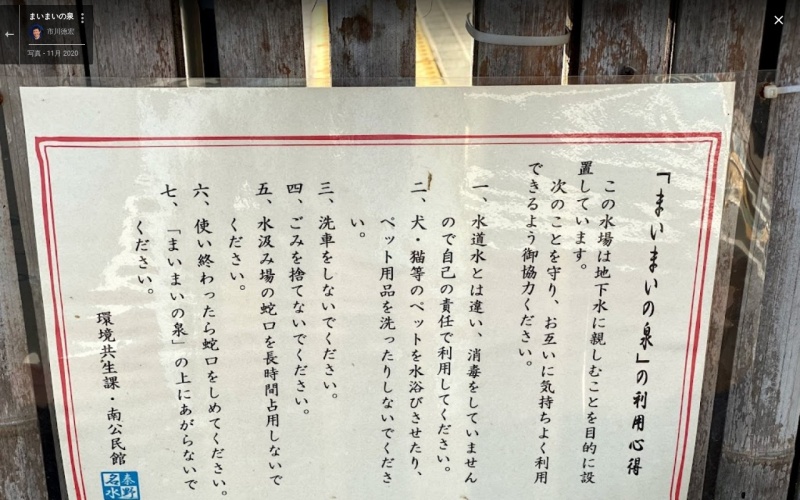 まいまいの泉
市川徳宏
写真 - 11月 2020
「まいまいの泉」の利用心得
この水場は地下水に親しむことを目的に設
置しています。
次のことを守り、お互いに気持ちよく利用
できるよう御協力ください。
一、水道水とは違い、消毒をしていません
ので自己の責任で利用してください。
二、犬・猫等のペットを水浴びさせたり、
ペット用品を洗ったりしないでくださ
い。
三、洗車をしないでください。
四、ごみを捨てないでください。
五、水汲み場の蛇口を長時間占用しないで
ください。
六、使い終わったら蛇口をしめてください。
七、「まいまいの泉」の上にあがらないで
ください。
環境共生課・南公民館
秦野
名水